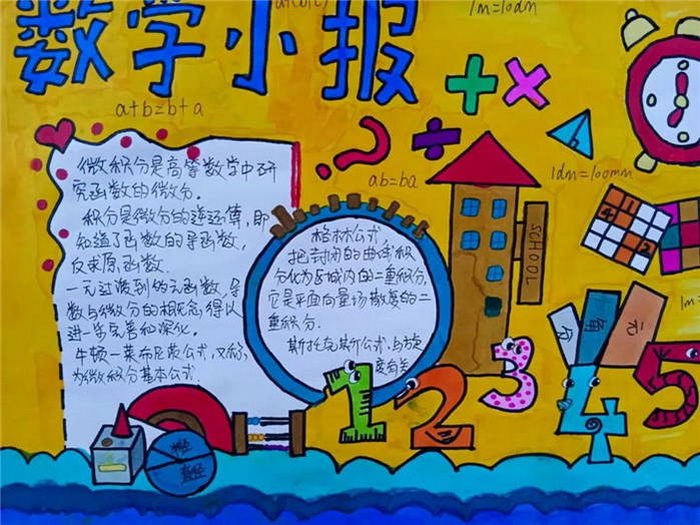 数学小报
1m=10dm
a+b=b+a
ab=ba
1dm=100mm
微积分是高等数学中研
究函数的微分.
积分是微分的逆运算,即
知道了函数的导函数,
反求原函数.
一元过渡到多元函数,导
数与微分的概念得以
进一步完善和深化.
牛顿一莱布尼茨公式,又称
为微积分基本公式.
格林公式
把封闭的曲线积
分化为区域内的二重积分,
它是平面向量场散度的二
重积分.
斯托克斯公式,与旋
度有关
SCHOOL
分
角
元
1 2 3 4 5
半径
直径